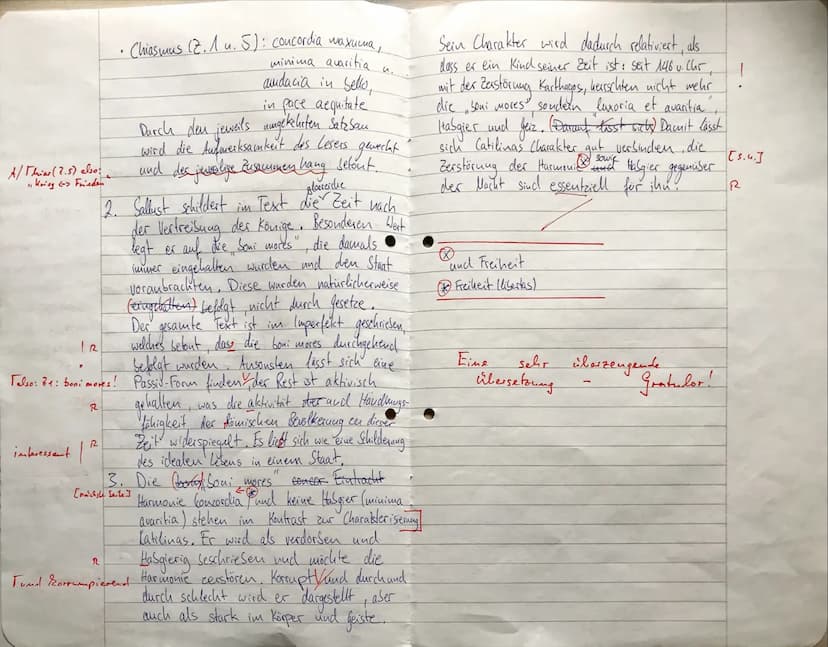 · Chiasmus (Z. 1 u. 5): concordia maxuma,
minima avaritia u.
audacia in bello,
in pace aequitate
Durch den jeweils umgekehrten Satzbau
wird die Aufmerksamkeit des Lesers geweckt
und der jeweilige Zusammenhang betont.
A/Thias (Z.5) also:
"Krieg <-> Frieden"
2. Sallust schildert im Text die glorreiche Zeit nach
der Vertreibung der Könige. Besonderen Wert
legt er auf die „boni mores", die damals
immer eingehalten wurden und den Staat
voranbrachten. Diese wurden natürlicherweise
(eingehalten) befolgt, nicht durch Gesetze.
Der gesamte Text ist im Imperfekt geschrieben,
! R
welches betont, dass die boni mores durchgehend
befolgt wurden. Ansonsten lässt sich eine
Γalso: Z1: boni mores!
Passiv-Form finden, der Rest ist aktivisch
R
gehalten, was die aktivität und Handlungs-
fähigkeit der römischen Bevölkerung zu dieser
R
Zeit widerspiegelt. Es ließt sich wie eine Schilderung
interessant
des idealen Lebens in einem Staat.
3. Die (boni) „boni mores" Eintracht
[nächste Seite]
Harmonie (concordia) ⊛ und keine Habgier (minima
avaritia) stehen im Kontrast zur Charakterisierung
Catilinas. Er wird als verdorben und
R
Habgierig beschrieben und möchte die
Γund korrumpierend
Harmonie zerstören. Korrupt und durch und
durch schlecht wird er dargestellt, aber
auch als stark im Körper und Geiste.
Sein Charakter wird dadurch relativiert, als
dass er ein Kind seiner Zeit ist: seit 146 v. Chr.,
!
mit der Zerstörung Karthagos, herrschten nicht mehr
die „boni mores" sondern „luxoria et avaritia",
Habgier und Geiz. (Darauf lässt sich) Damit lässt
sich Catilinas Charakter gut verbinden, die
[s.u.]
Zerstörung der Harmonie ⊗ sowie Habgier gegenüber
R
der Macht sind essentziell für ihn.
⊗
und Freiheit
⊛ Freiheit (libertas)
Eine sehr überzeugende
Übersetzung - Gratulor!